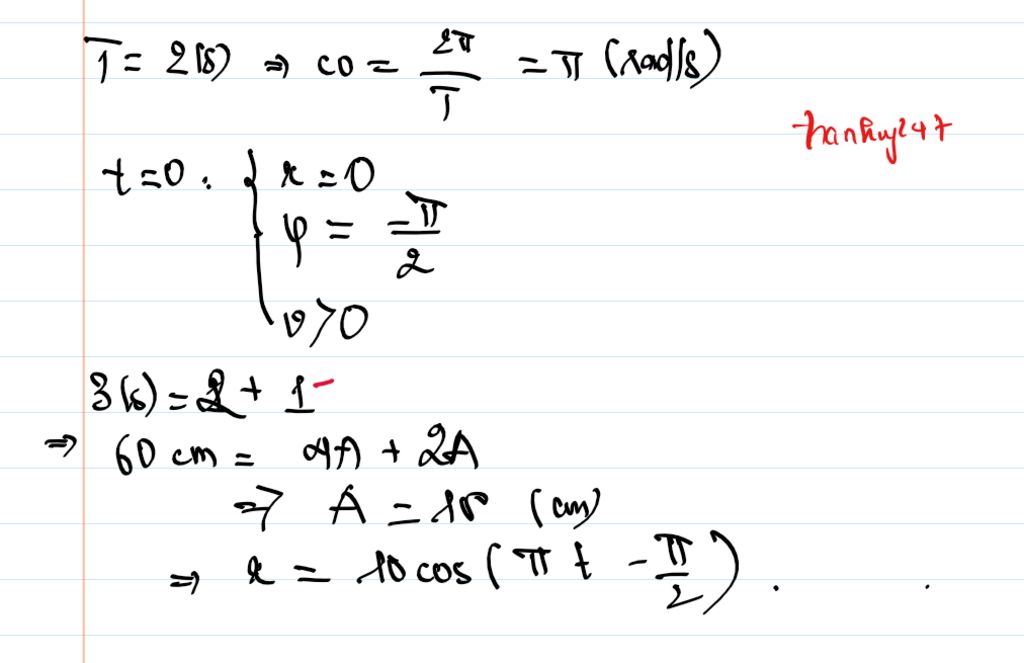 T = 2(s) ⇒ ω = 2π/T = π (rad/s)
t=0: { x = 0
φ = -π/2
v>0
3(s) = 2 + 1
⇒ 60 cm = 4A + 2A
⇒ A = 10 (cm)
⇒ x = 10 cos(πt - π/2).